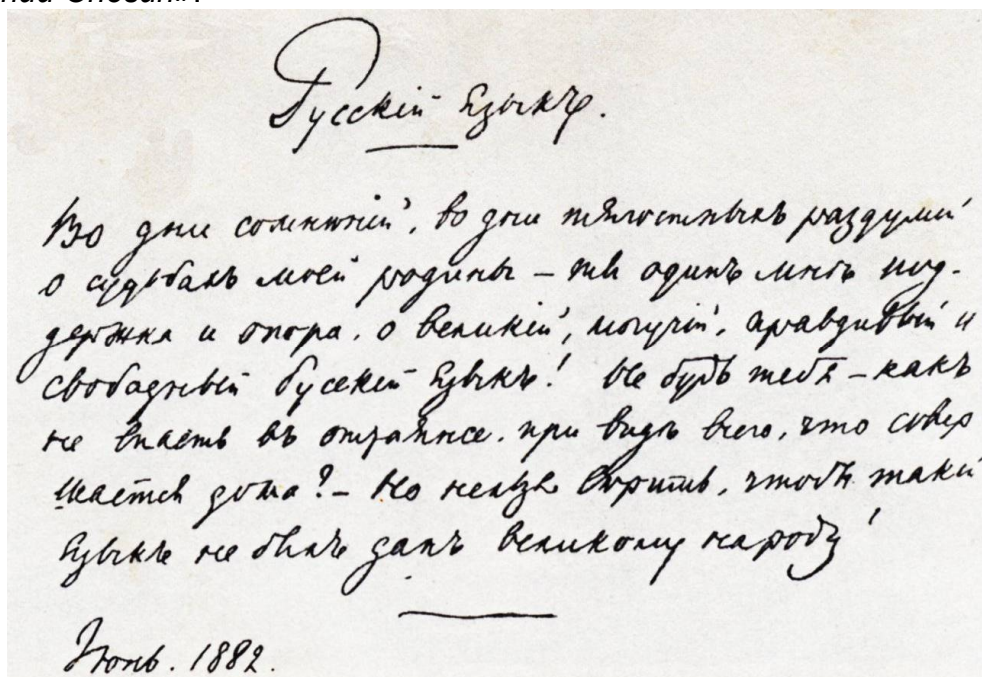 Русскій Языкъ.
Во дни сомнѣній, во дни тягостныхъ раздумій
о судьбахъ моей родины – ты одинъ мнѣ под-
держка и опора, о великій, могучій, правдивый и
свободный русскій языкъ! Не будь тебя – какъ
не впасть въ отчаянье, при видѣ всего, что совер
шается дома? – Но нельзя вѣрить, чтобы такой
языкъ не былъ данъ великому народу!
Июнь. 1882.